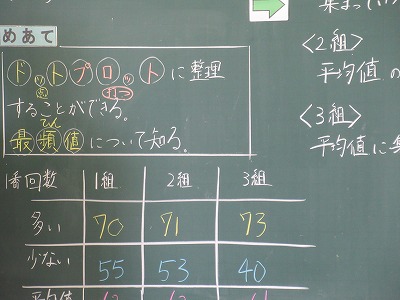 めあて
ドットプロットに整理
てん
打つ
することができる。
最頻値について知る。
集まってい
<2組>
平均値の
<3組>
平均値に集
番回数 1組 2組 3組
多い 70 71 73
少ない 55 53 40
平均値